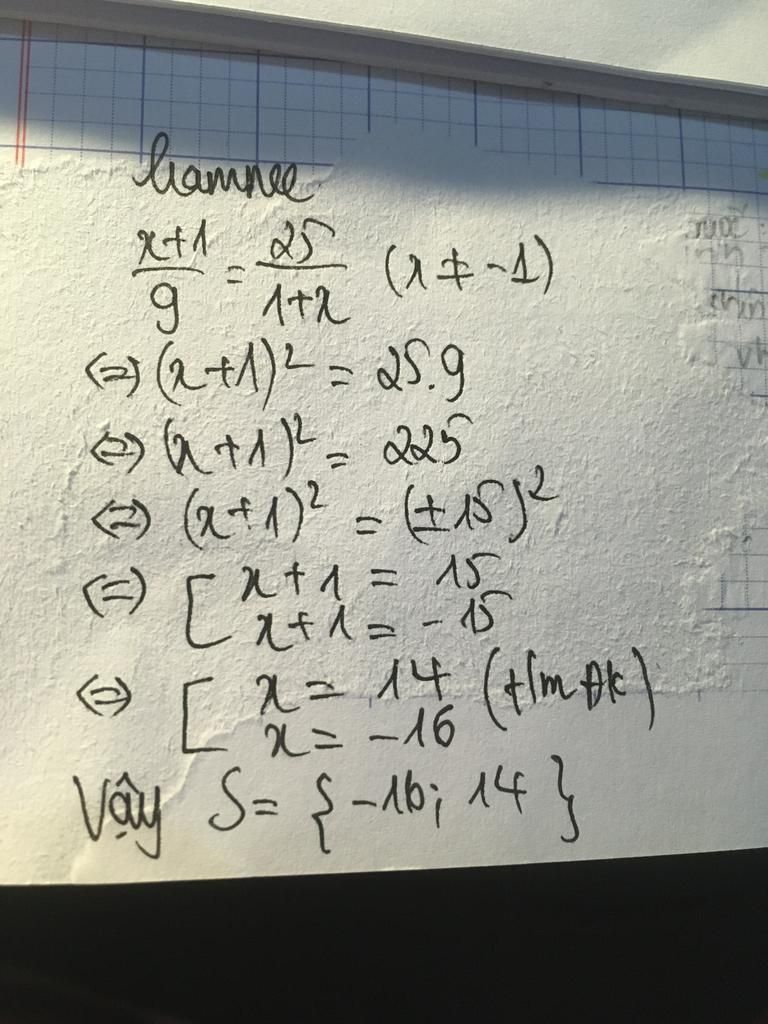 hamnee
x+1/9 = 25/1+x (x ≠ -1)
⇔ (x+1)² = 25.9
⇔ (x+1)² = 225
⇔ (x+1)² = (±15)²
⇔ [ x+1 = 15
x+1 = -15
⇔ [ x = 14 (t/m đk)
x = -16
Vậy S = {-16; 14}